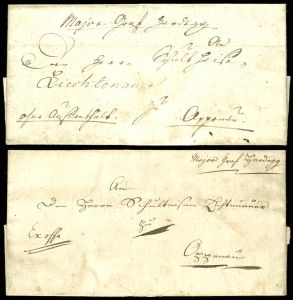 Major Graf Hardegg
An
Den Herrn Schultheise
Liechtenauer
zu
Oppenau
Major Graf Hardegg
An
Den Herrn Schultheisen Lichtenauer
zu
Ex offo
Oppenau